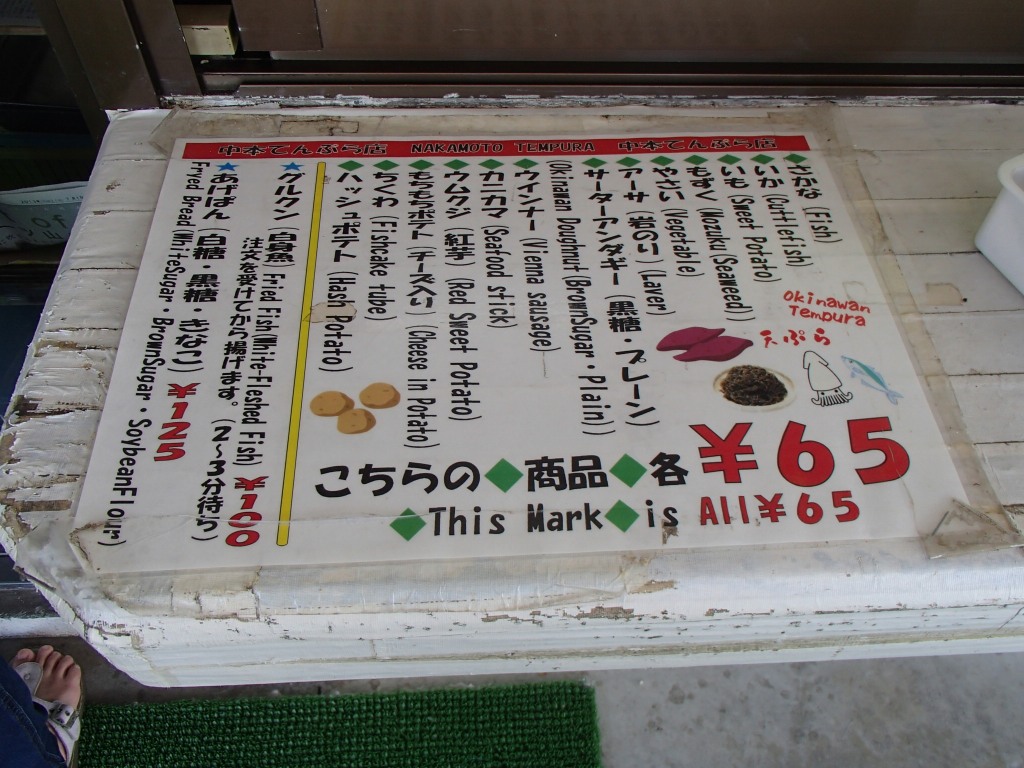 中本てんぷら店 NAKAMOTO TEMPURA 中本てんぷら店
◆さかな (Fish)
◆いか (Cuttlefish)
◆いも (Sweet Potato)
◆もずく (Nozuku (Seaweed))
◆やさい (Vegetable)
◆アーサ (岩のり) (Laver)
◆サーターアンダギー (黒糖・プレーン)
(Okinawan Doughnut BrownSugar・Plain)
◆ウインナー (Vienna sausage)
◆カニカマ (Seafood stick)
◆ウムクジ (紅芋) (Red Sweet Potato)
◆もちもちポテト (チーズ入り) (Cheese in Potato)
◆ちくわ (Fishcake tube)
◆ハッシュポテト (Hash Potato)
Okinawan
Tempura
てんぷら
こちらの◆商品◆各 ¥65
◆This Mark◆is All¥65
★グルクン (白身魚 Fried Fish(White-Fleshed Fish) ¥100
注文を受けてから揚げます。(2～3分待ち)
★あげぱん (白糖・黒糖・きなこ) ¥125
Fried Bread (WhiteSugar・BrownSugar・SoybeanFlour)